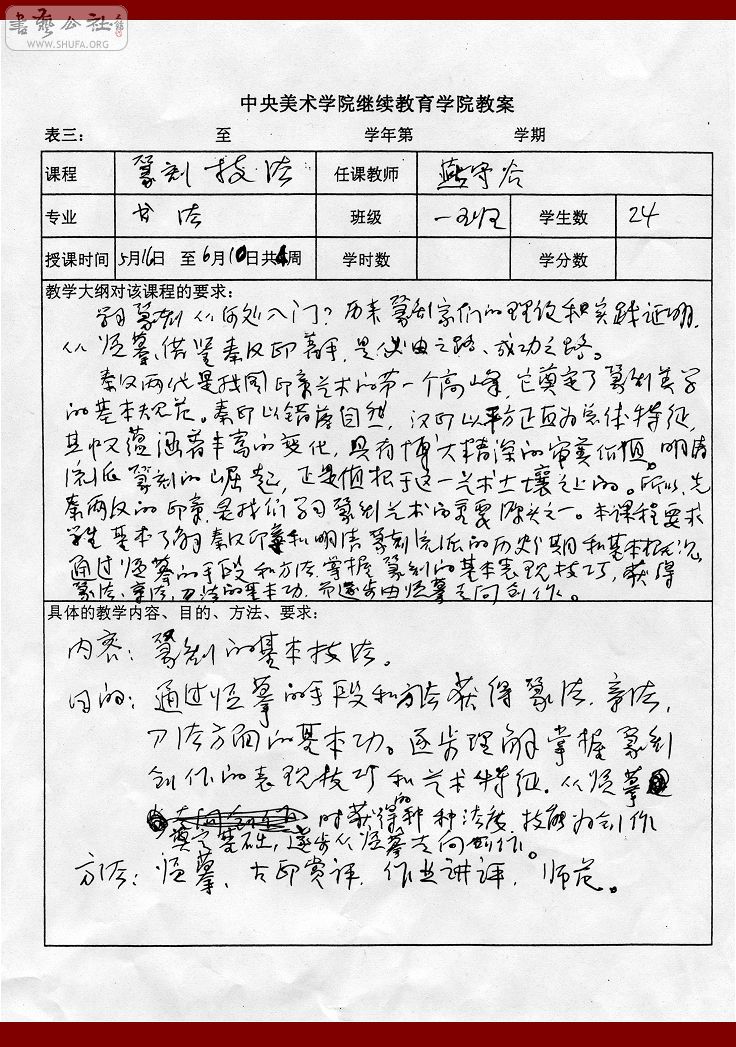 書藝公社
WWW.SHUFA.ORG
中央美术学院继续教育学院教案
表三： 至 学年第 学期
课程 篆刻技法 任课教师 燕守谷
专业 书法 班级 学生数 24
授课时间 5月16日 至6月10日共4周 学时数 学分数
教学大纲对该课程的要求：
学习篆刻从何处入门？历来篆刻家们的理论和实践证明，
从临摹、借鉴秦汉印入手，是必由之路、成功之路。
秦汉两代是我国印章艺术的第一个高峰，它奠定了篆刻美学
的基本规范。秦印以错落自然，汉印以平方正直为总体特征，
其中又蕴涵着丰富的变化，具有博大精深的审美价值。明清
流派篆刻的崛起，正是植根于这一艺术土壤之上的。所以，先
秦两汉的印章是我们学习篆刻艺术的重要源头之一。本课程要求
学生基本了解秦汉印章和明清篆刻流派的历史分期和基本概况，
通过临摹的手段和方法，掌握篆刻的基本表现技巧，获得
篆法、章法、刀法的基本功，而逐步由临摹走向创作。
具体的教学内容、目的、方法、要求：
内容：篆刻的基本技法。
目的：通过临摹的手段和方法获得篆法、章法、
刀法方面的基本功。逐步理解掌握篆刻
创作的表现技巧和艺术特征。从临摹
时获得的种种法度、技能为创作
奠定基础，逐步从临摹走向创作。
方法：临摹、古印赏评、作业讲评、师范。